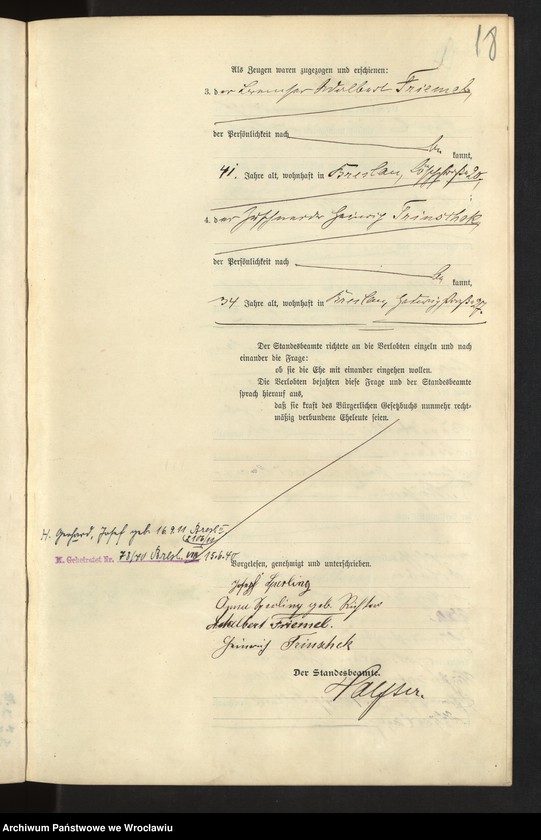 18
Als Zeugen waren zugezogen und erschienen:
3. der Adalbert Friemel,
der Persönlichkeit nach
be kannt,
41. Jahre alt, wohnhaft in Breslau,
4. der Heinrich Trinschek,
der Persönlichkeit nach
be kannt,
34 Jahre alt, wohnhaft in Breslau,
Der Standesbeamte richtete an die Verlobten einzeln und nach
einander die Frage:
ob sie die Ehe mit einander eingehen wollen.
Die Verlobten bejahten diese Frage und der Standesbeamte
sprach hierauf aus,
daß sie kraft des Bürgerlichen Gesetzbuchs nunmehr recht-
mäßig verbundene Eheleute seien.
H. Gerhard, Josef geb. 16.9.11 Bresl. I
K. Geheiratet Nr. 78/40 Bresl. VIII 15.6.40
Vorgelesen, genehmigt und unterschrieben.
Josef Sperling
Anna Sperling geb. Richter
Adalbert Friemel.
Heinrich Trinschek
Der Standesbeamte.
Archiwum Państwowe we Wrocławiu